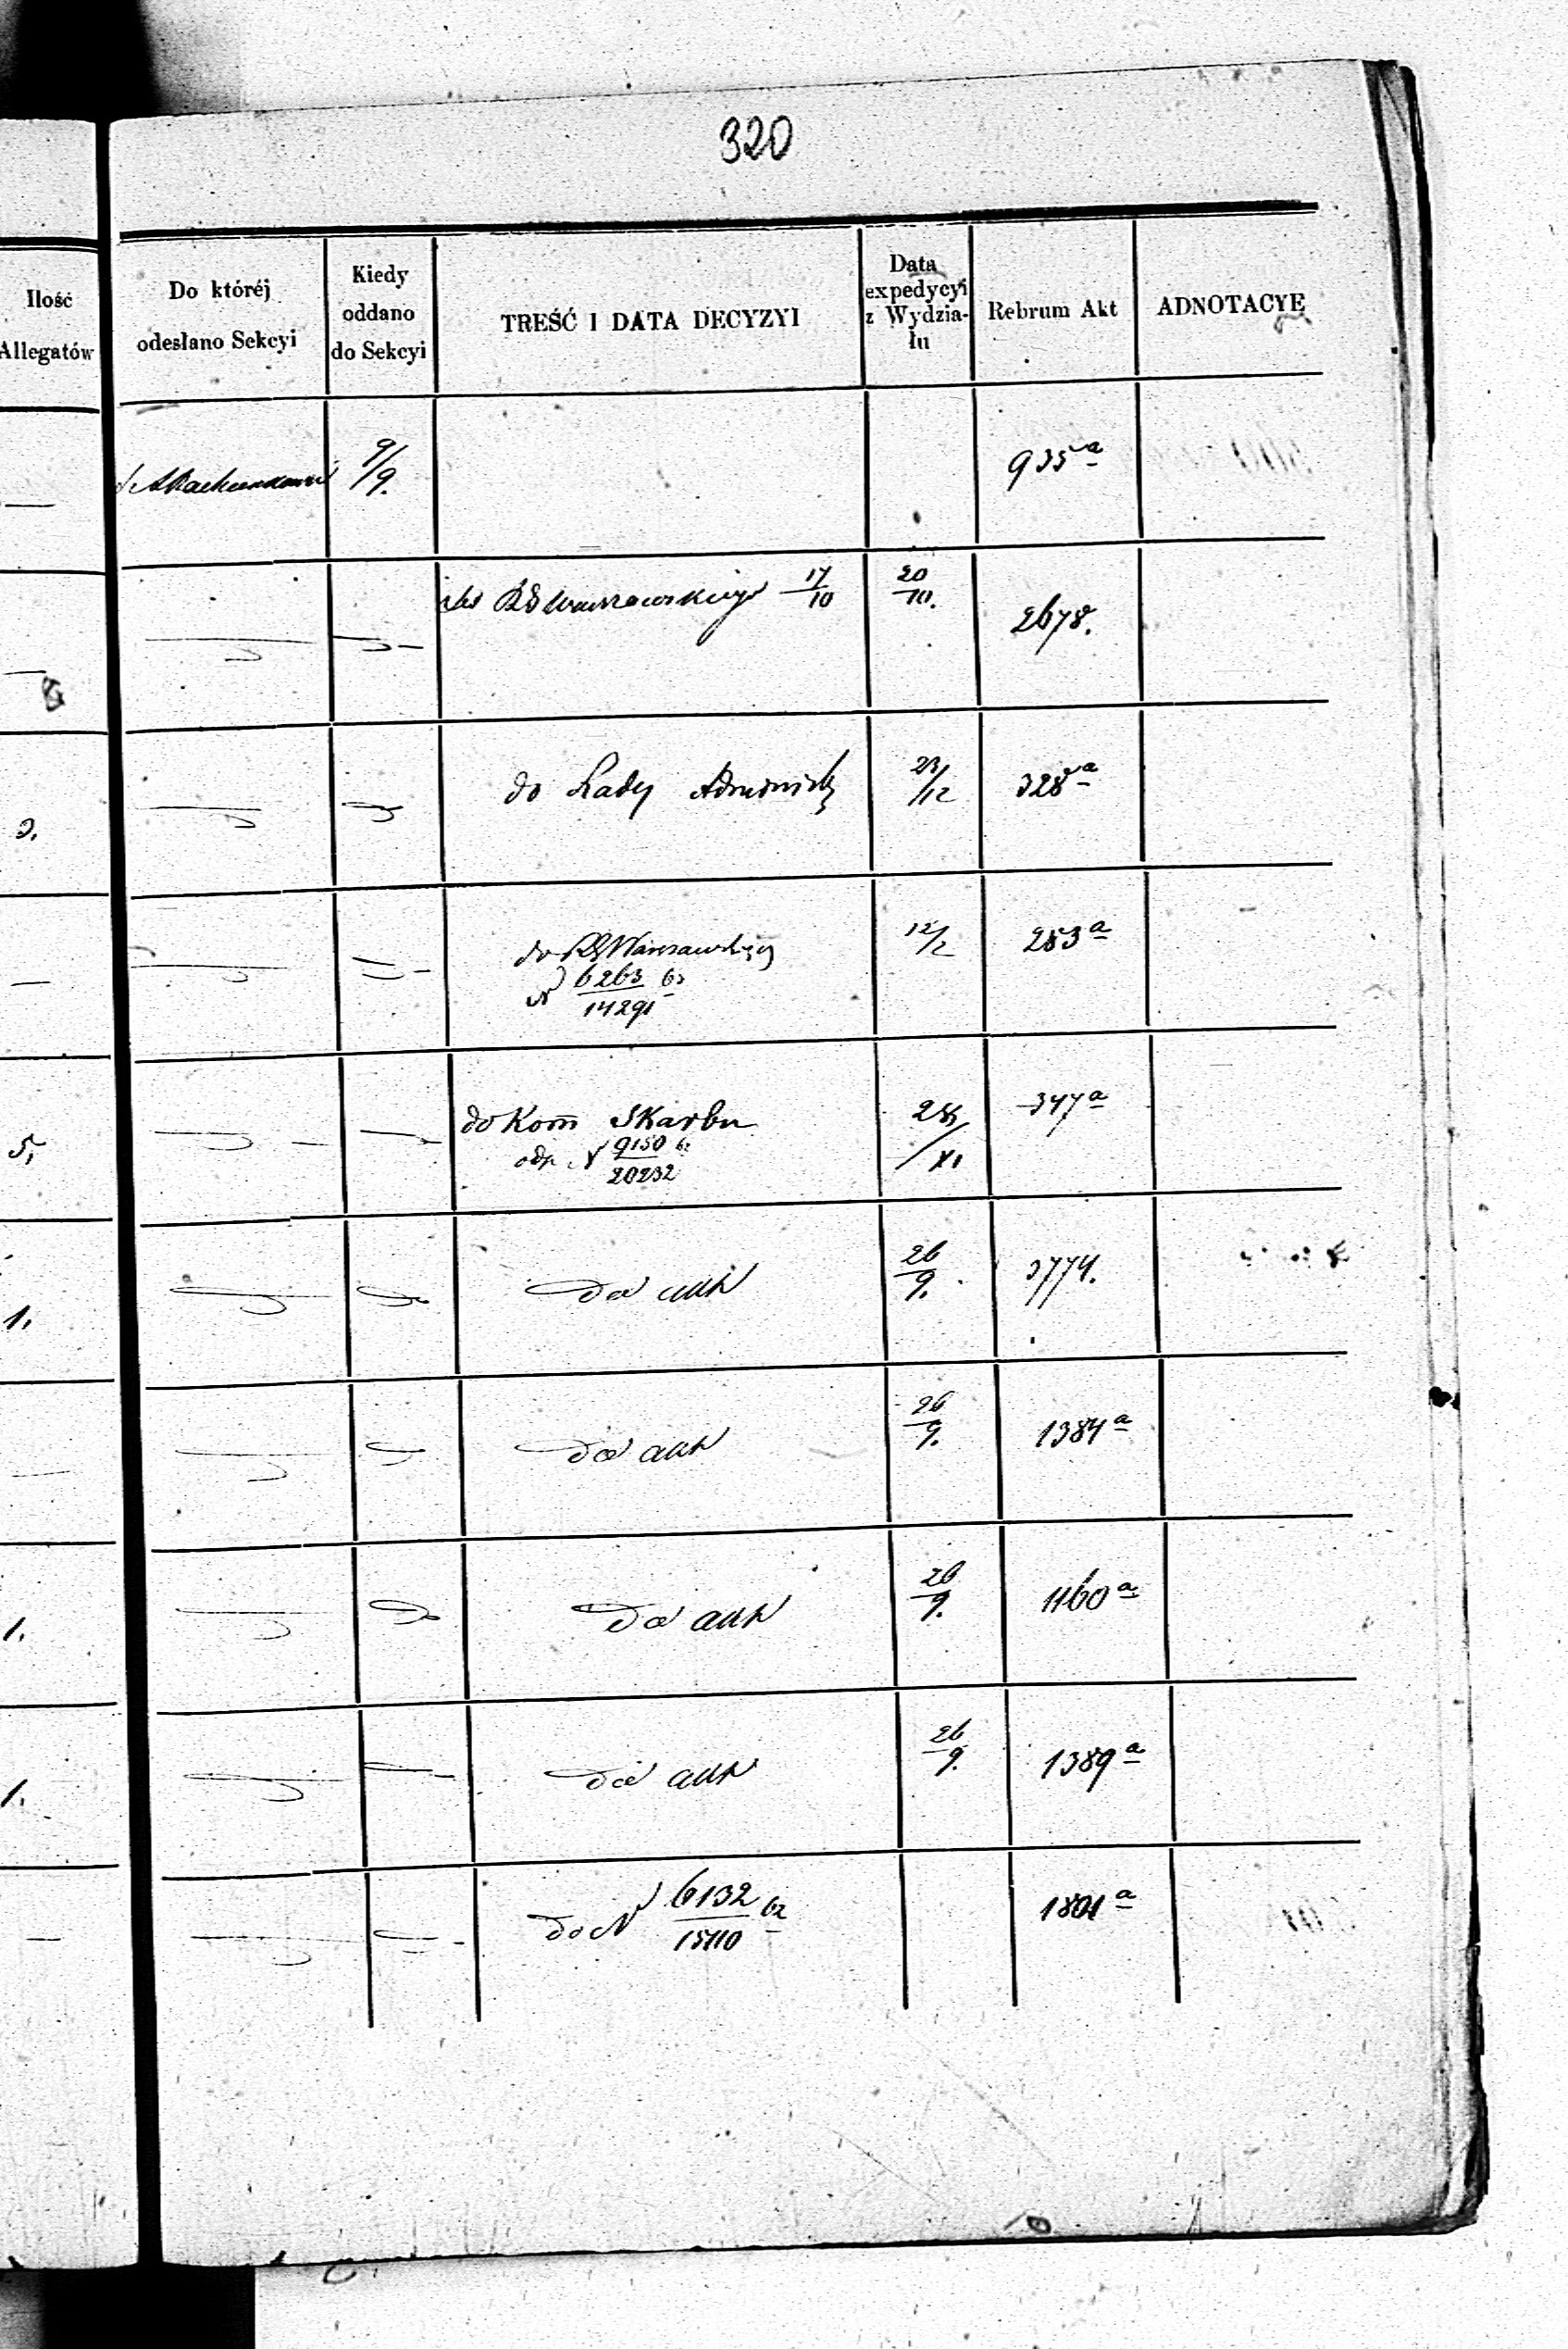 320
Ilość
Allegatów
Do któréj
odesłano Sekcyi
Kiedy
oddano
do Sekcyi
TREŚĆ I DATA DECYZYI
Data
expedycyi
z Wydzia-
łu
Rebrum Akt
ADNOTACYE
9/9.
935 a
do RG Warszawskiego 17/10
20/10.
2678.
do Rady Administr
23/12
328 a
do RG Warszawskiego
N 6263/14291 62
12/2
253 a
5,
do Kom Skarbu
odp. N 9150/20232 62
28/XI
347 a
1.
do akt
26/9.
3774.
do akt
26/9.
1384 a
1.
do akt
26/9.
1160 a
1.
do akt
26/9.
1389 a
do N 6132/15110 62
1801 a